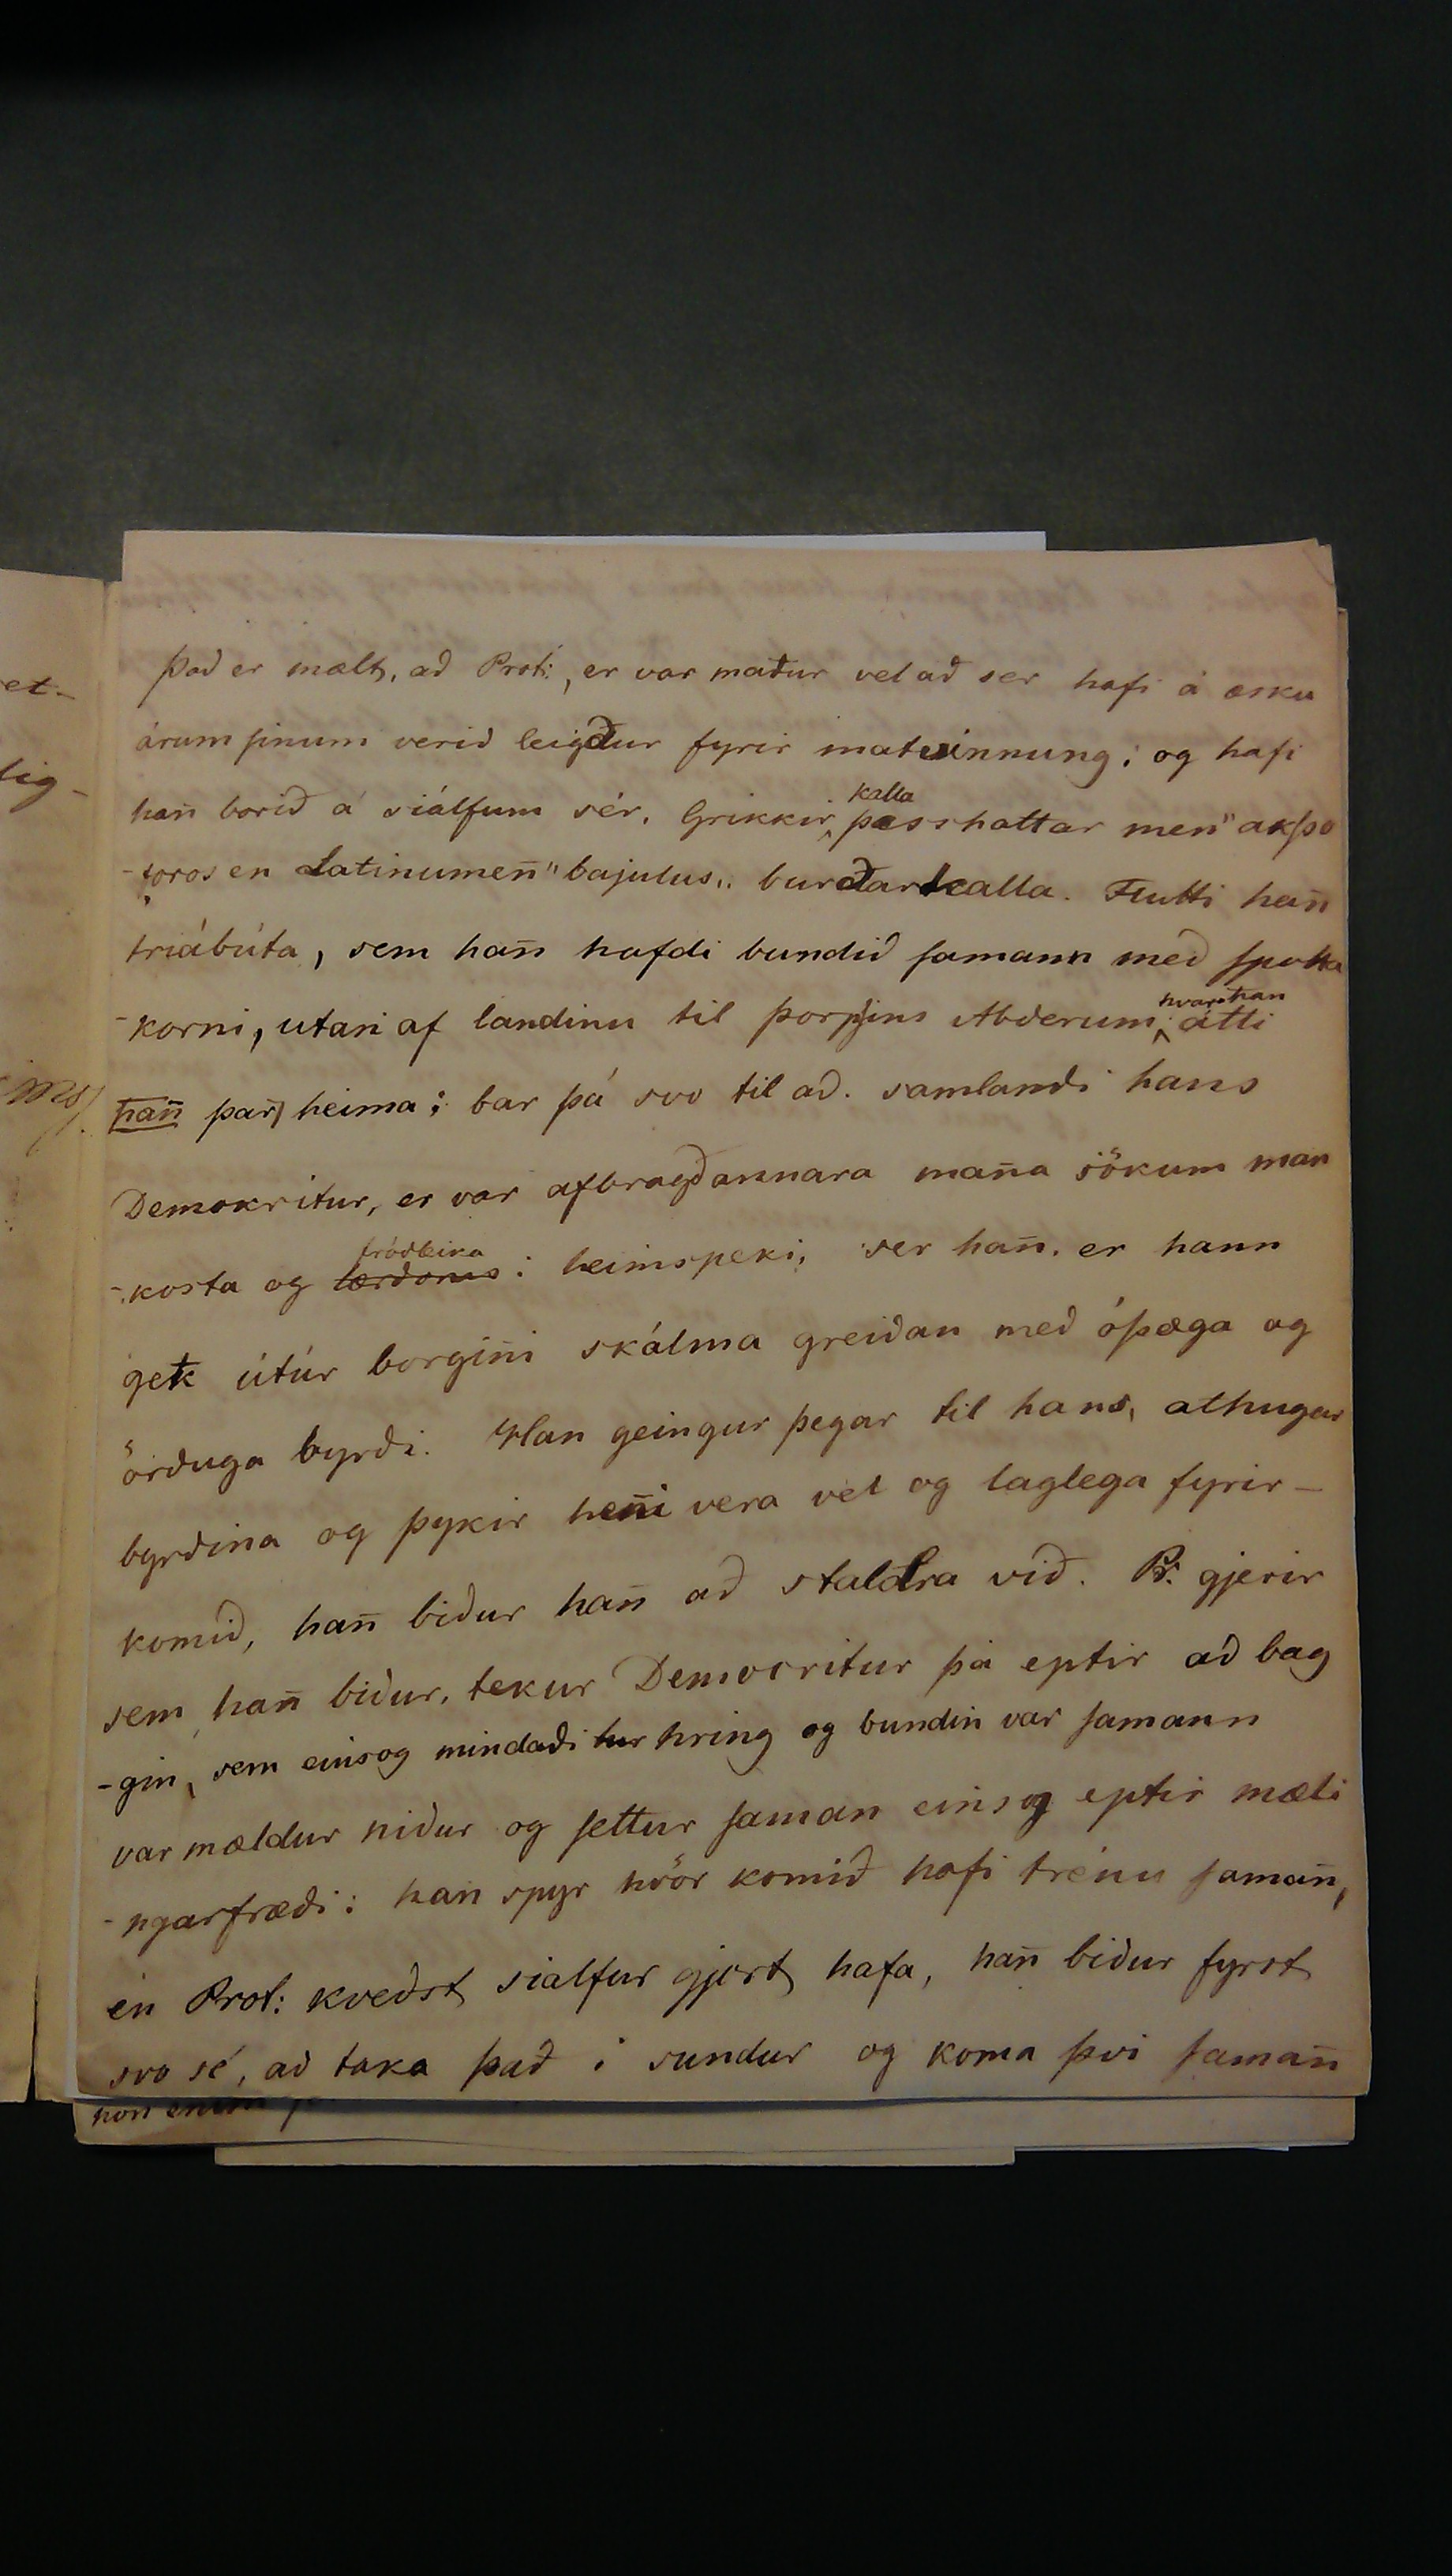 Það er mælt, að Prot:, er var maður vel að ser hafi á æsku
árum sinum verið leigður fyrir matvinnung; og hafi
han̄ borið á siálfum sér. Grikkir kalla þesshattar men̄ "akþo
-foros en Latinumen̄ "bajulus,, burðarkalla. Flutti han̄
triábúta, sem han̄ hafdi bundið samann með spotta
-korni, utan af landinu til þorpsins Abderum, hvar han átti
han̄ þar heima; bar þá svo til að samlandi hans
Demokritur, er var afbragð annara man̄a sökum man
-kosta og fróðleika lærdoms i heimspeki, ser han̄, er hann
gekk útúr borgin̄i skálma greiðan með óþæga og
örðuga byrði. Han geingur þegar til hans, athugar
byrðina og þykir hen̄i vera vel og laglega fyrir-
komið, han̄ biður han̄ að staldra við. Pr. gjerir
sem han̄ biður, tekur Democritur þá eptir að bag
-gin, sem einsog mindaði hring og bundin var samann
var mældur niður og settur saman einsog eptir mæli
-ngarfræði: han̄ spyr hvör komið hafi trénu saman̄,
en Prot: kveðst sialfur gjort hafa, han̄ biður fyrst
svo sé, að taka það i sundur og koma þvi saman̄
et-
lig-